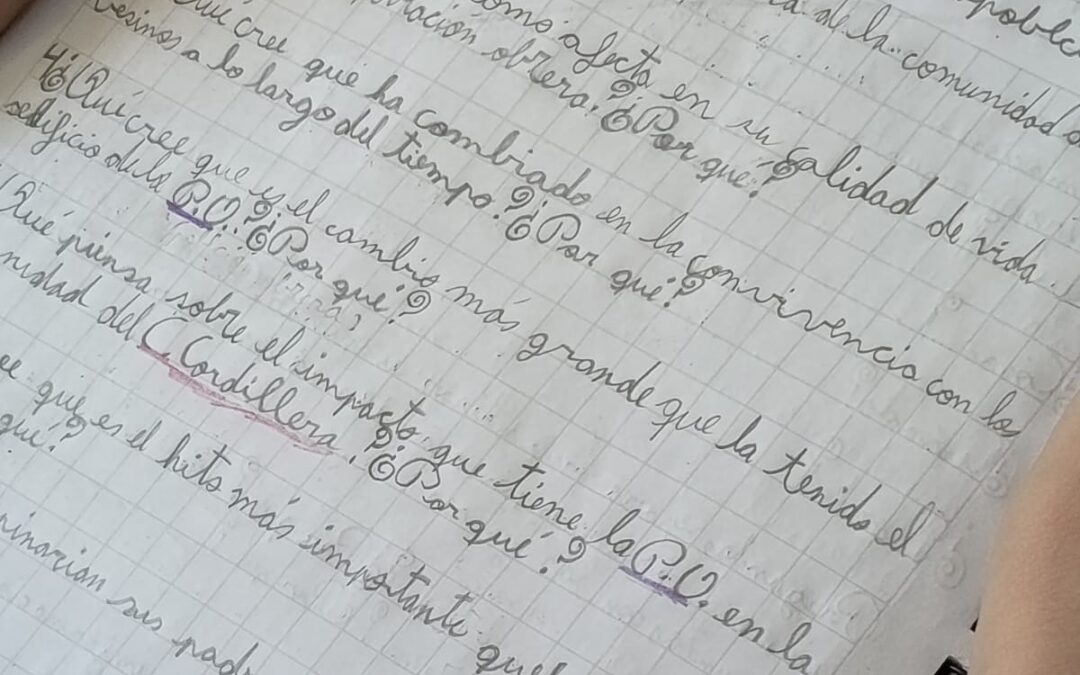 de la comunidad
cómo afecta en su calidad de vida.
obrera.?¿Por qué?
cree que ha combiado en la convivencia con los
vesinos a lo largo del tiempo.?¿Por qué?
4¿Qué cree que es el cambio más grande que la tenido el
edificio de la P.O.?¿Por qué?
¿Qué piensa sobre el impacto que tiene la P.O. en la
nidad del C. Cordillera.?¿Por qué?
que es el hito más importante que
qué?
sus